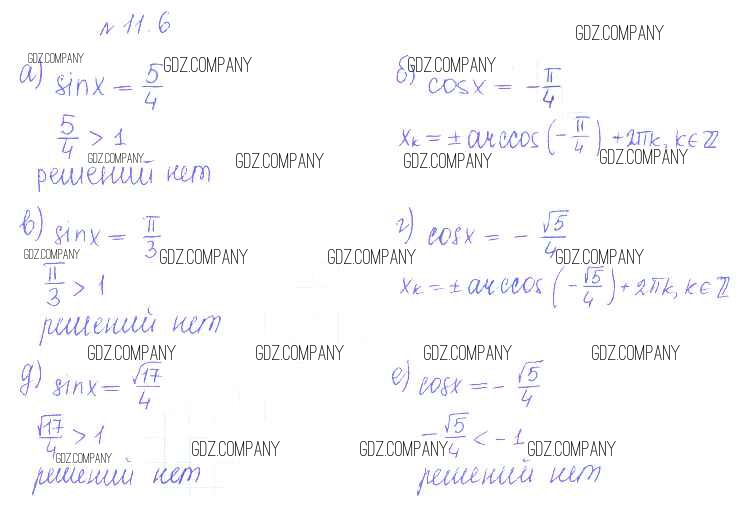 № 11.6
GDZ.COMPANY
GDZ.COMPANY
а) sinx = 5/4
GDZ.COMPANY
5/4 > 1
GDZ.COMPANY
решений нет
GDZ.COMPANY
б) cosx = -π/4
GDZ.COMPANY
xₖ = ± arccos(-π/4) + 2πk, k∈ℤ
GDZ.COMPANY
GDZ.COMPANY
GDZ.COMPANY
в) sinx = π/3
GDZ.COMPANY
GDZ.COMPANY
π/3 > 1
решений нет
г) cosx = - √5/4
GDZ.COMPANY
GDZ.COMPANY
xₖ = ± arccos(-√5/4) + 2πk, k∈ℤ
GDZ.COMPANY
GDZ.COMPANY
GDZ.COMPANY
GDZ.COMPANY
д) sinx = √17/4
√17/4 > 1
GDZ.COMPANY
GDZ.COMPANY
решений нет
е) cosx = - √5/4
-√5/4 < -1
GDZ.COMPANY
GDZ.COMPANY
решений нет